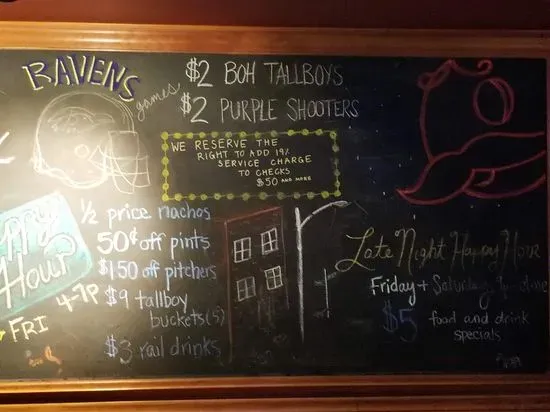 RAVENS
games
$2 BOH TALLBOYS
$2 PURPLE SHOOTERS
WE RESERVE THE
RIGHT TO ADD 19%
SERVICE CHARGE
TO CHECKS
$50 AND MORE
ppy
Hour
4-7P
FRI
1/2 price nachos
50¢ off pints
$1.50 off pitchers
$9 tallboy
buckets(5)
$3 rail drinks
Late Night Happy Hour
Friday + Saturday
$5 food and drink
specials